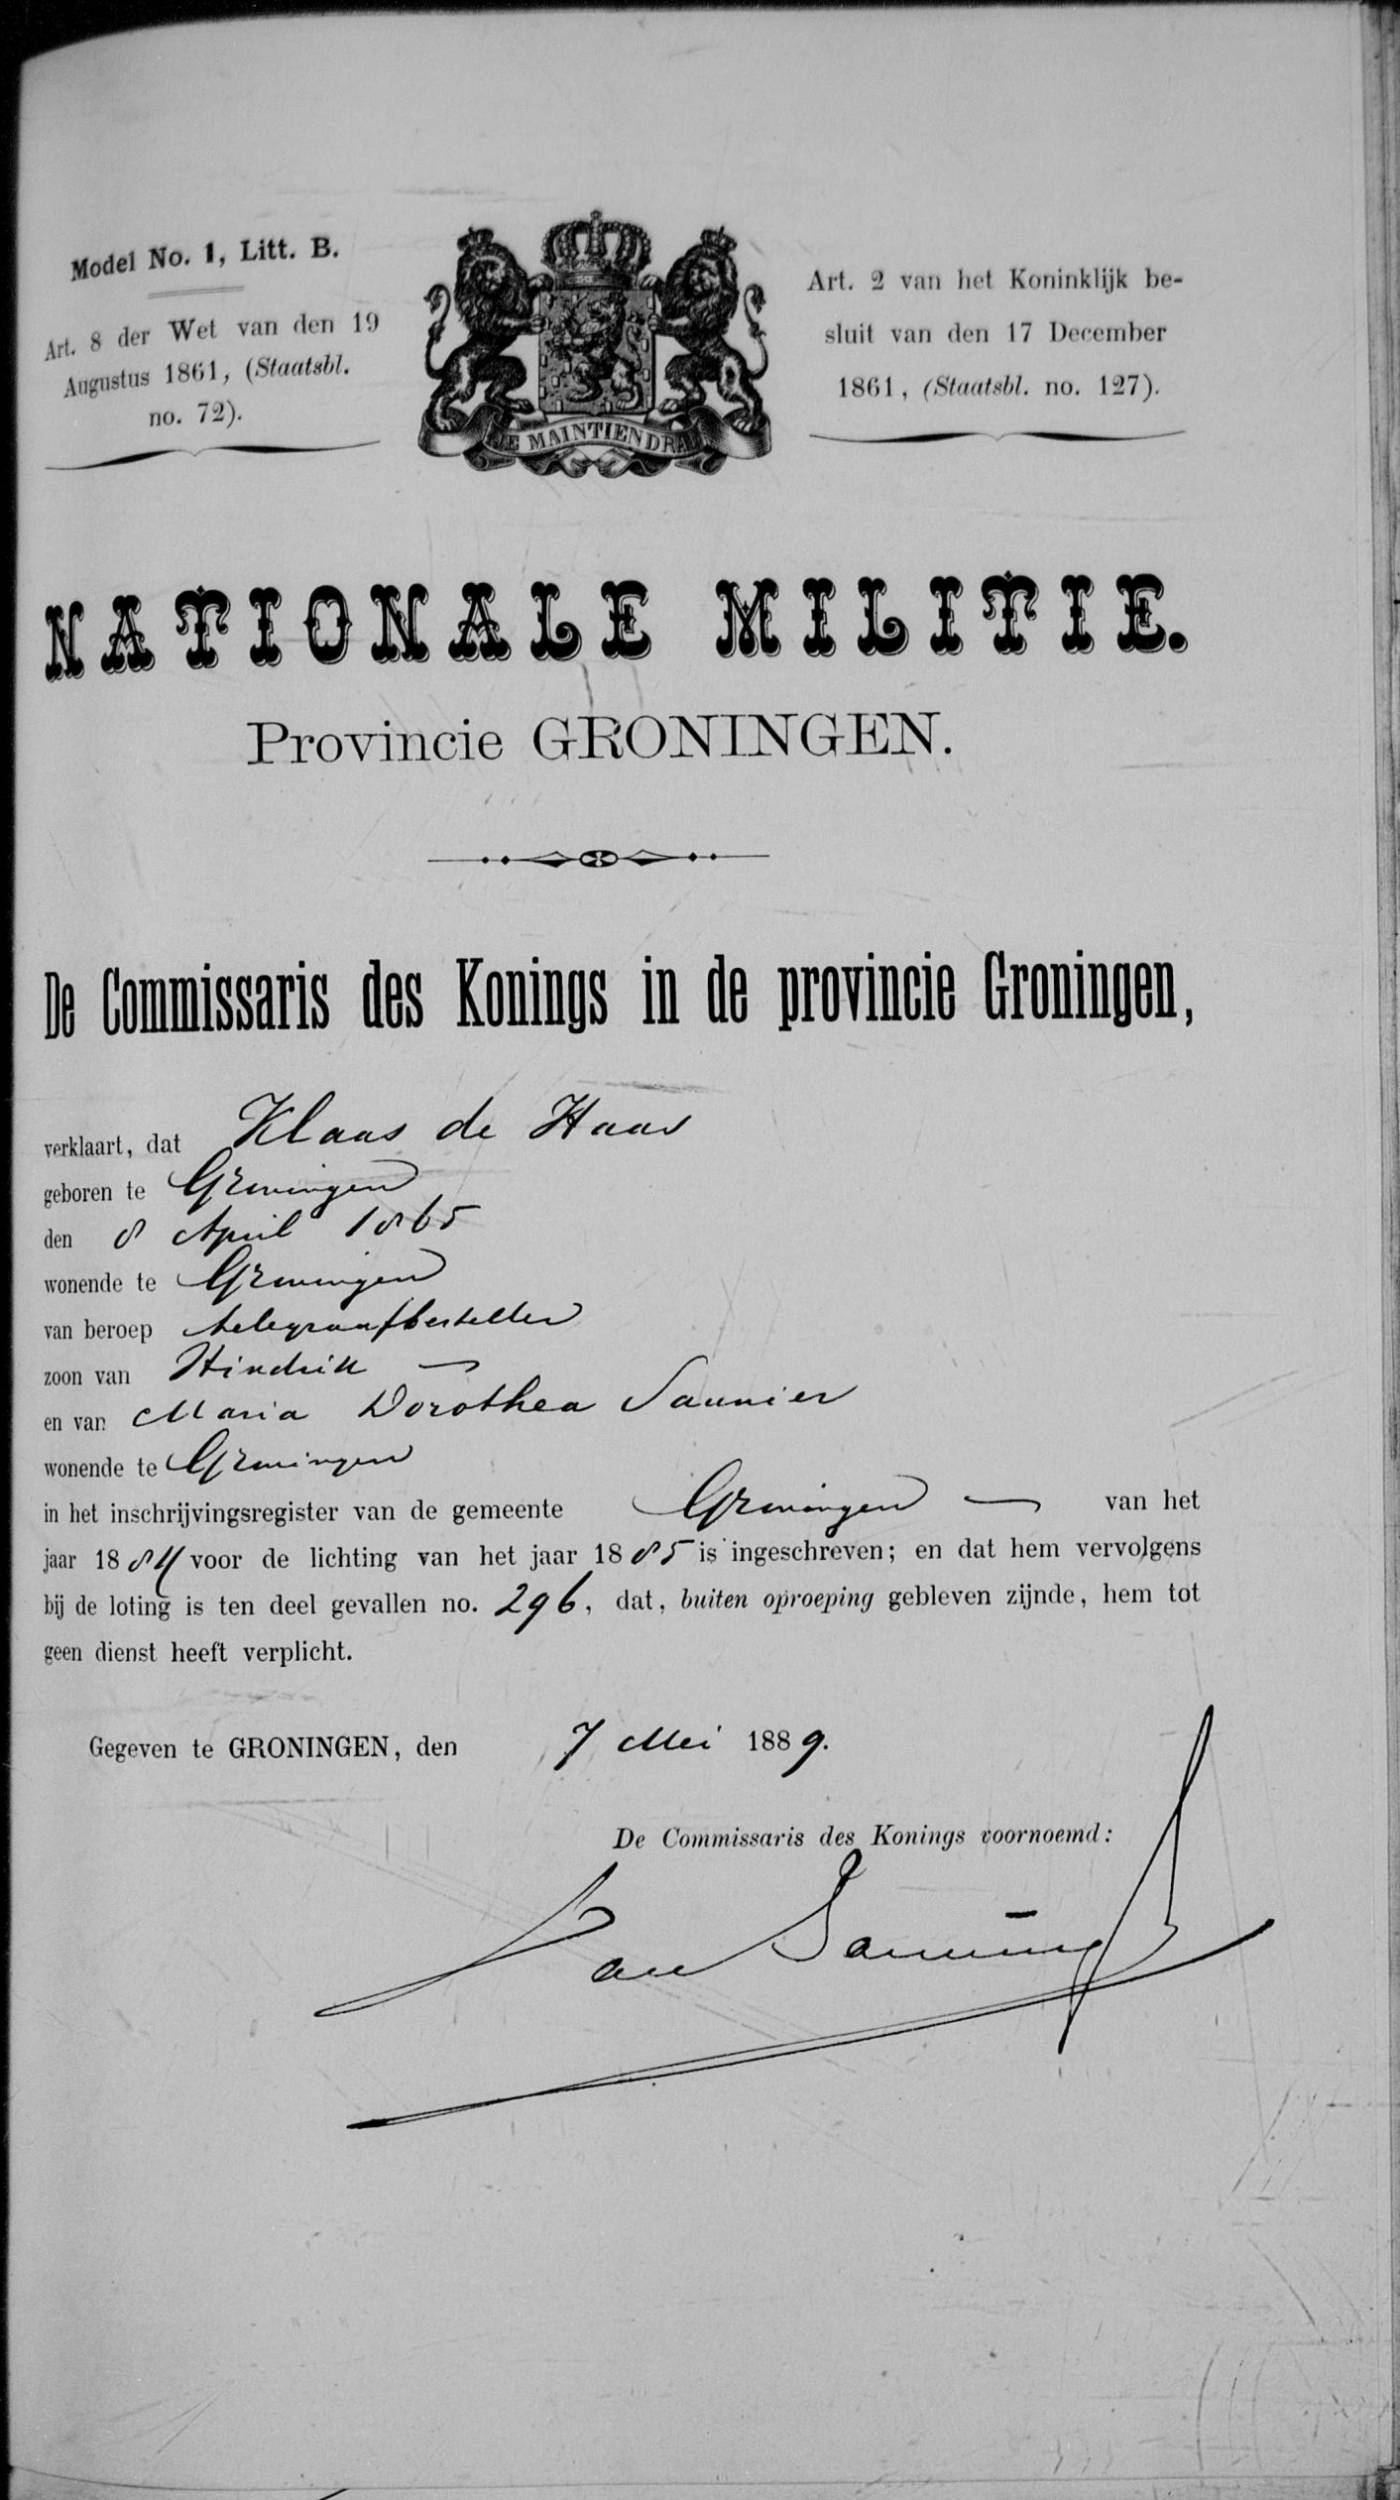 Model No. 1, Litt. B.
Art. 8 der Wet van den 19
Augustus 1861, (Staatsbl.
no. 72).
JE MAINTIENDRAI
Art. 2 van het Koninklijk be-
sluit van den 17 December
1861, (Staatsbl. no. 127).
NATIONALE MILITIE.
Provincie GRONINGEN.
De Commissaris des Konings in de provincie Groningen,
verklaart, dat Klaas de Haas
geboren te Groningen
den 8 April 1865
wonende te Groningen
van beroep telegraafbesteller
zoon van Hindrik —
en van Maria Dorothea Saunier
wonende te Groningen
in het inschrijvingsregister van de gemeente Groningen — van het
jaar 1884 voor de lichting van het jaar 1885 is ingeschreven; en dat hem vervolgens
bij de loting is ten deel gevallen no. 296, dat, buiten oproeping gebleven zijnde, hem tot
geen dienst heeft verplicht.
Gegeven te GRONINGEN, den 7 Mei 1889.
De Commissaris des Konings voornoemd: